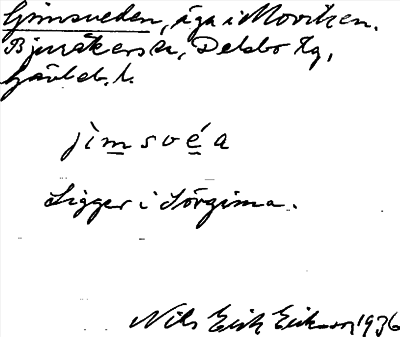 Gimsveden, äga i Moviken.
Bjuråkers sn, Delsbo tg,
Gävleb. l.
jìmsvéa
Ligger i Sörgima.
Nils Erik Eriksson 1936